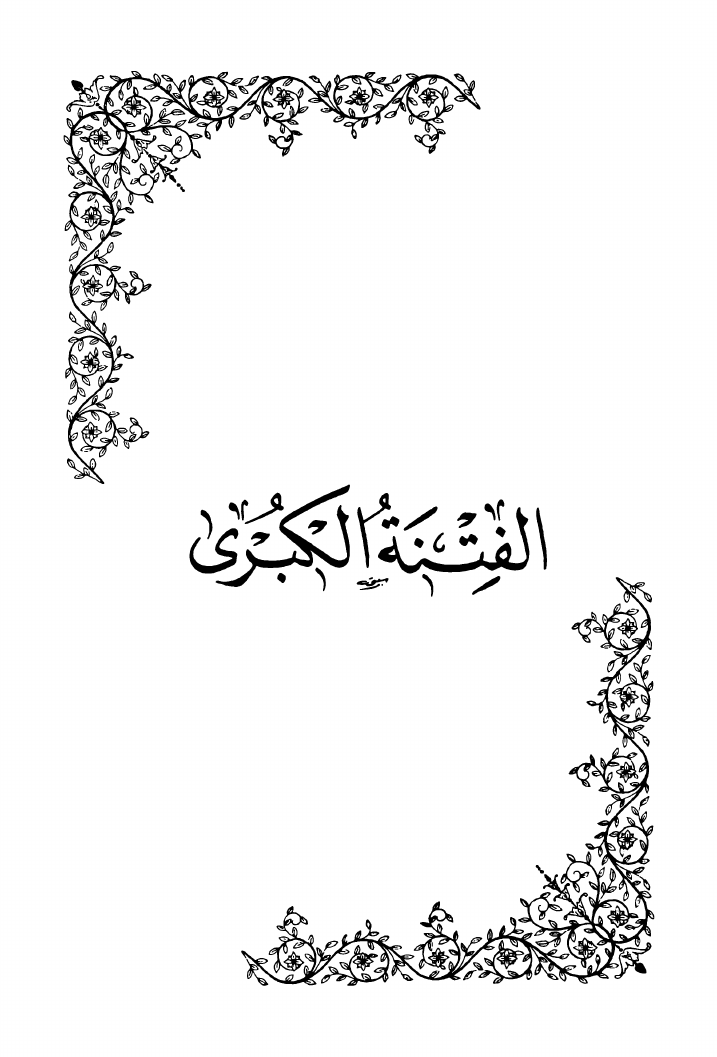 الفِتْنَةُ الكُبْرى